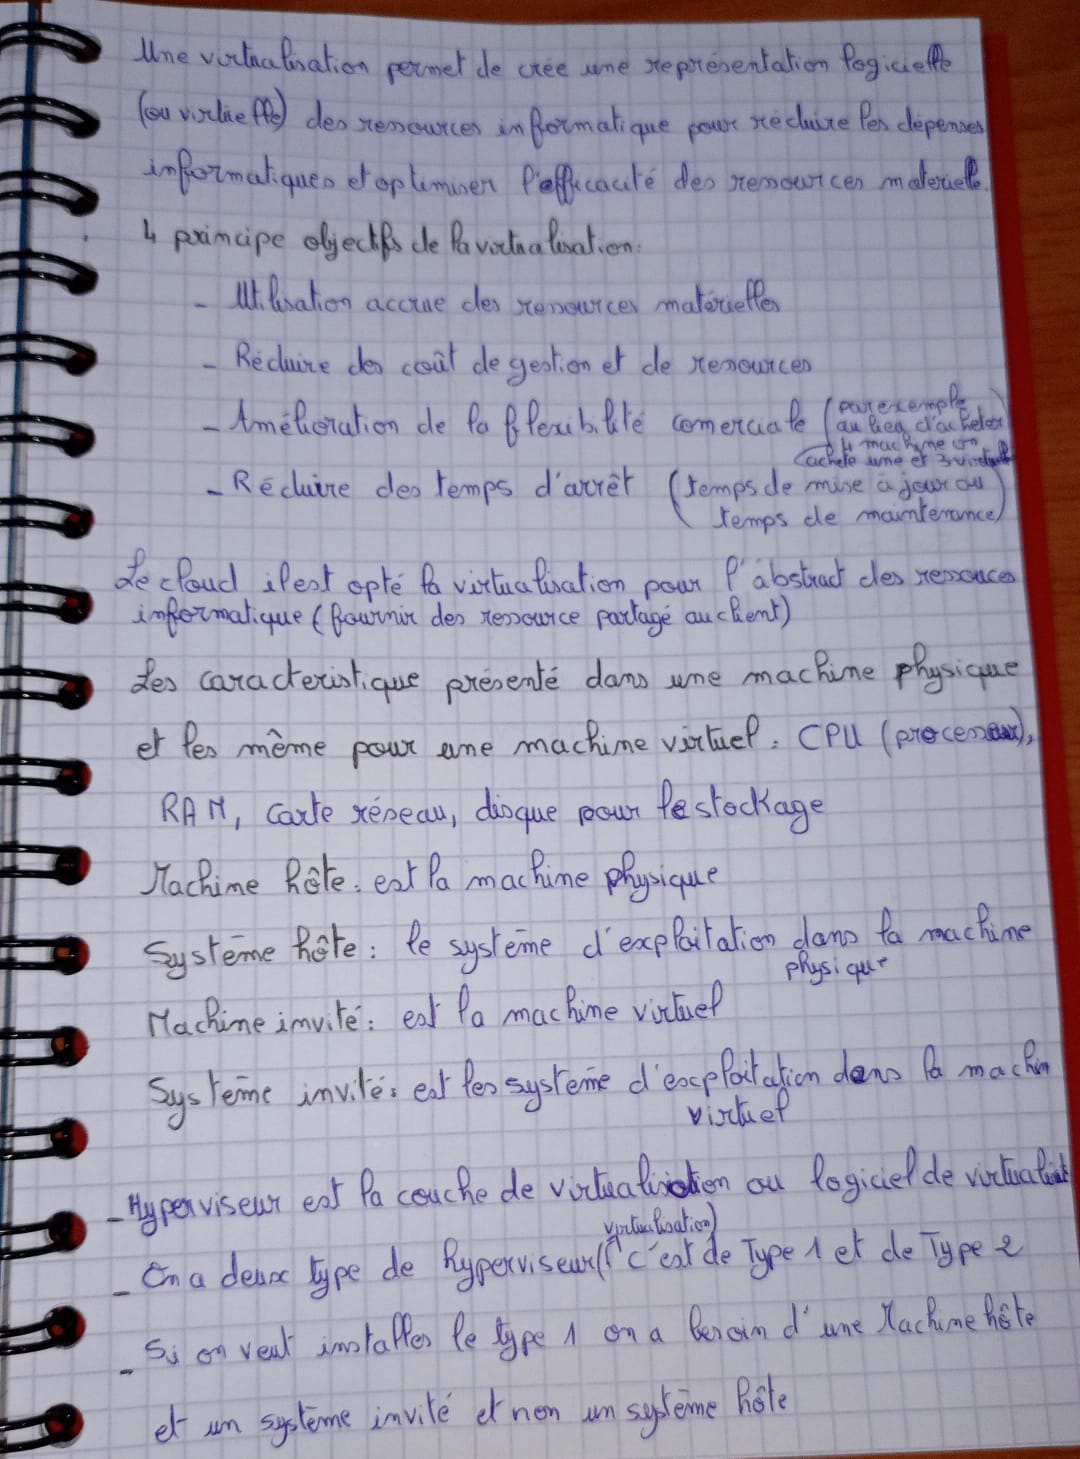 Une virtualisation permet de crée une représentation logicielle
(ou virtuelle) des ressources informatique pour réduire les dépenses
informatiques et optimiser l'efficacité des ressources materielle.
4 principe objectifs de la virtualisation:
- Utilisation accrue des ressources matérielles
- Réduire des coût de gestion et de ressources
- Amélioration de la flexibilité comerciale (par exemple
au lieu d'acheter
4 machine on
achete une et 3 virtuel)
- Réduire des temps d'arrêt (temps de mise à jour ou
temps de maintenance)
Le cloud il est opté la virtualisation pour l'abstract des ressources
informatique (fournir des ressource partagé au client)
Les caracteristique présenté dans une machine physique
et les même pour une machine virtuel : CPU (processeur),
RAM, carte réseau, disque pour le stockage
Machine hôte : est la machine physique
Système hôte : le système d'exploitation dans la machine
physique
Machine invité : est la machine virtuel
Système invité : est les système d'exploitation dans la machin
virtuel
- Hyperviseur est la couche de virtualisation ou logiciel de
virtualisation)
- On a deux type de hyperviseur c'est de Type 1 et de Type 2
- Si on veut installer le type 1 on a besoin d'une Machine hôte
et un système invité et non un système hôte